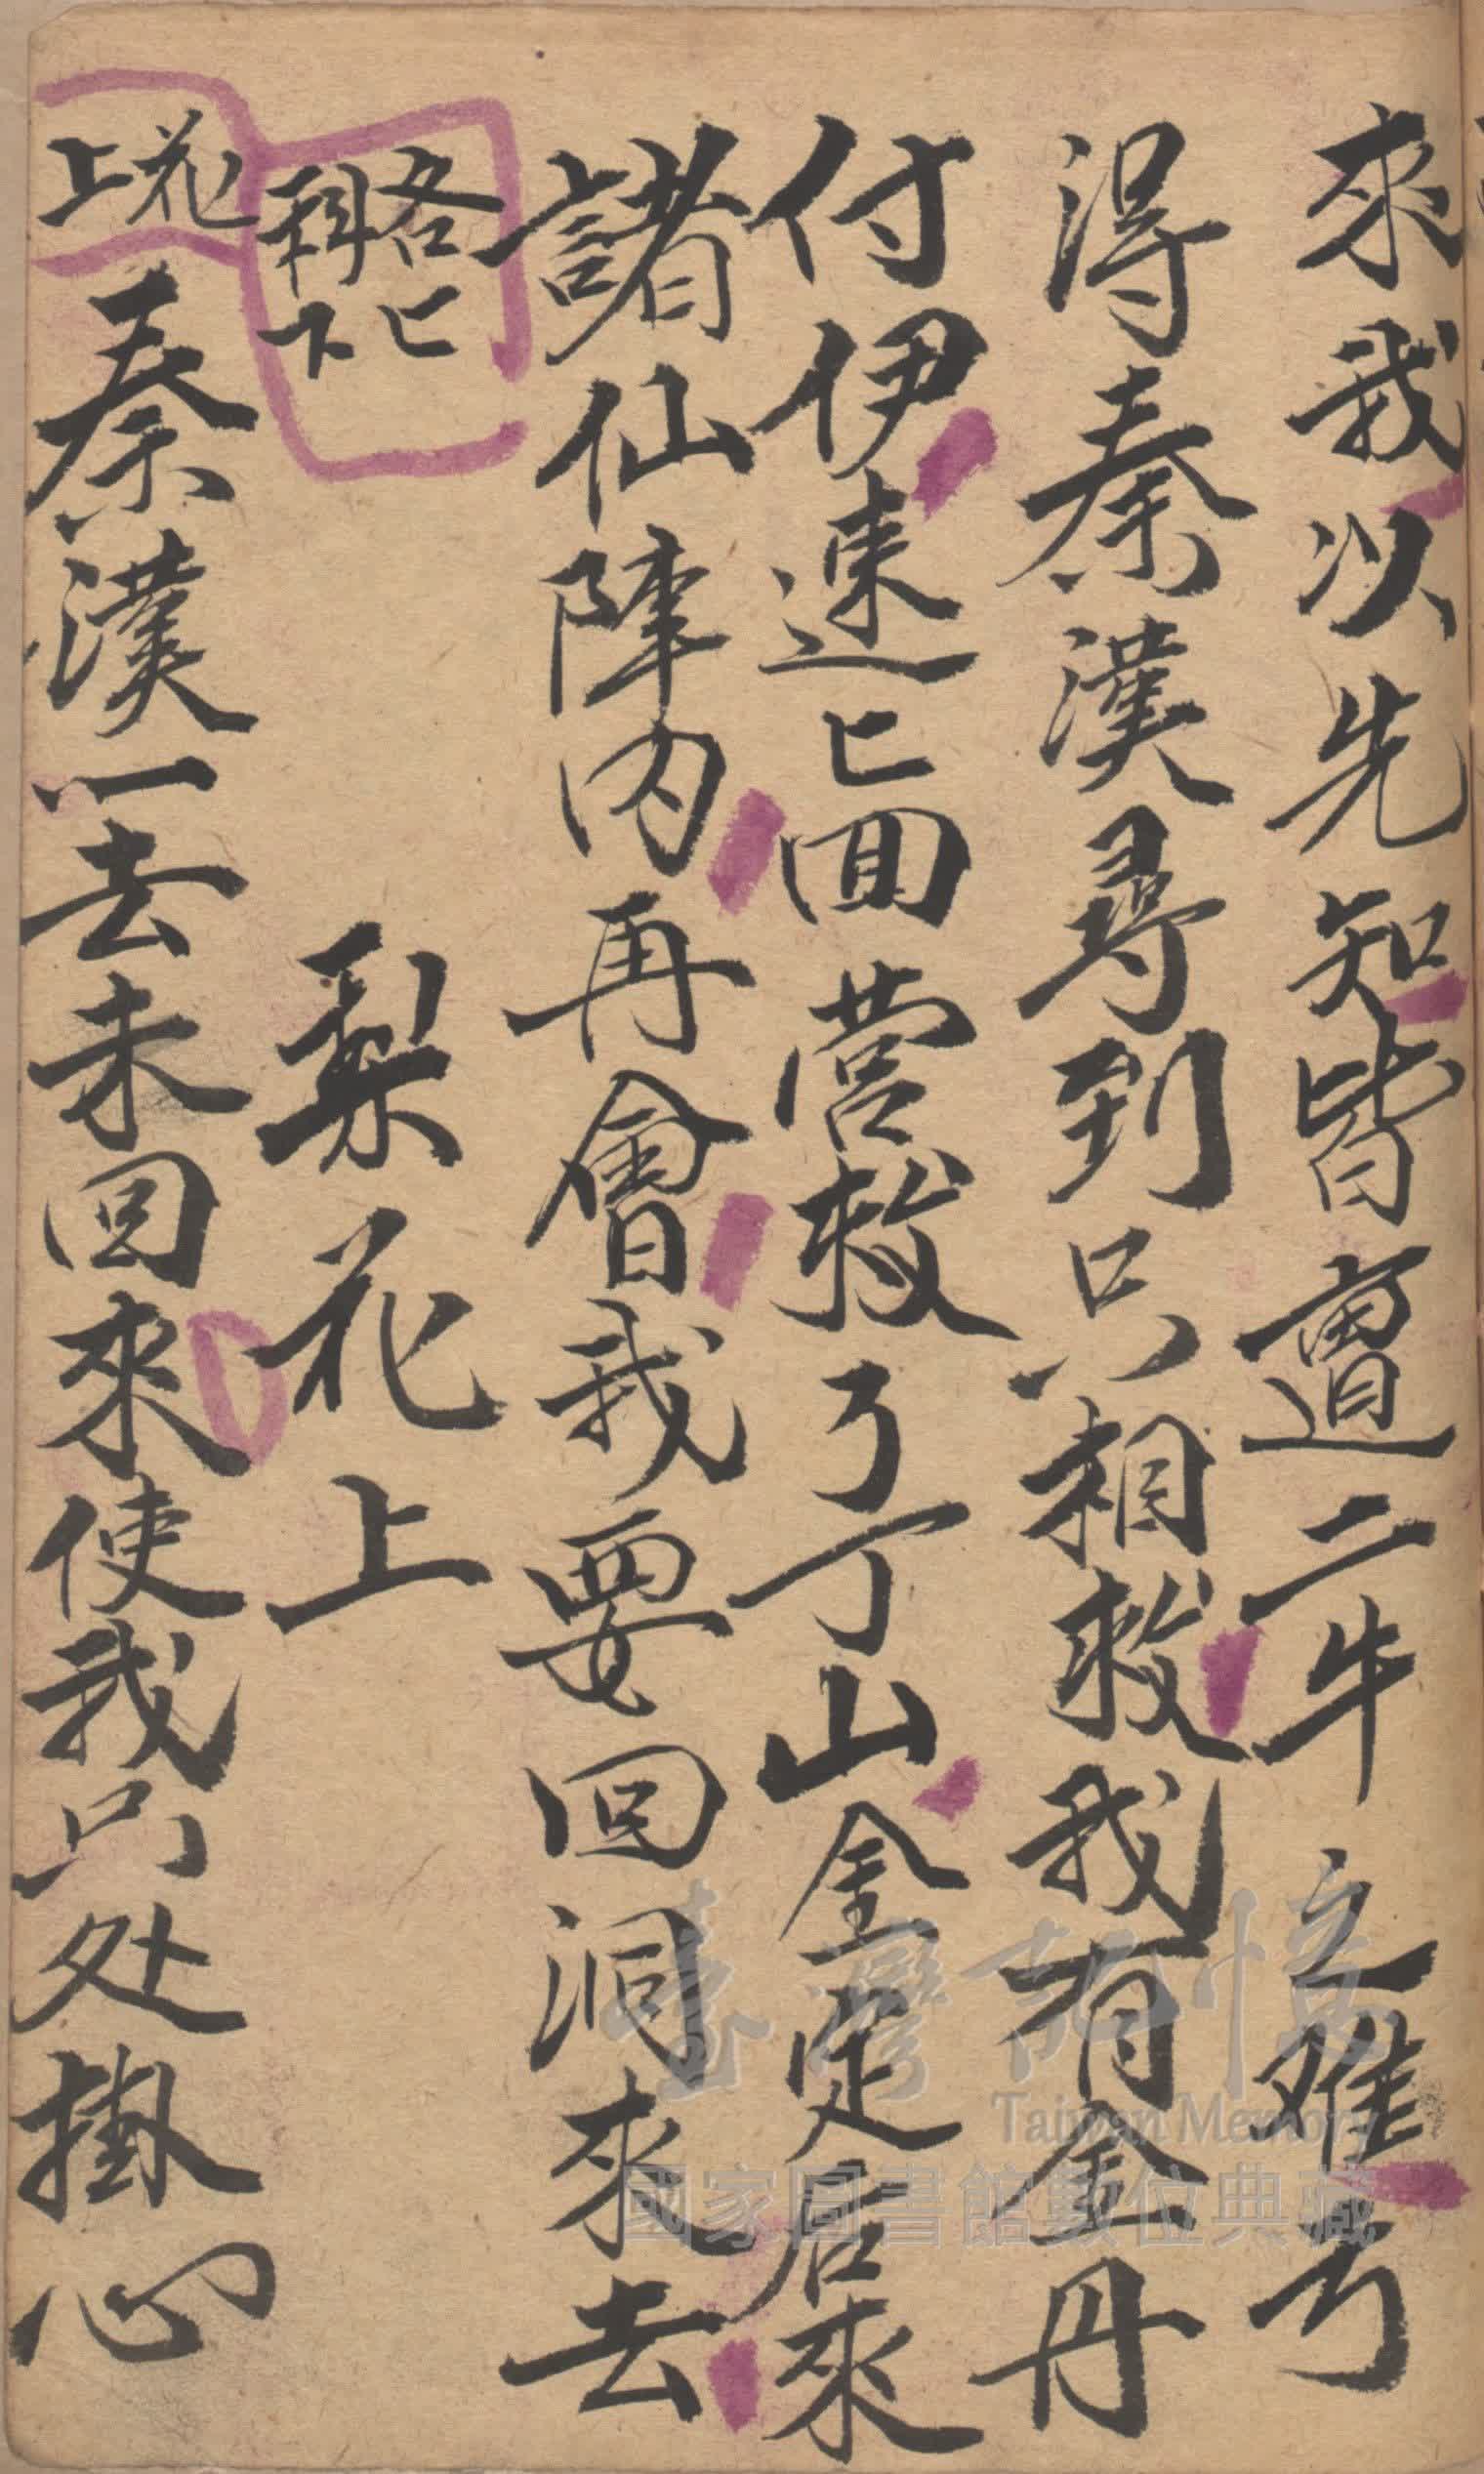 來我以先知皆遭二牛之难丂
淂秦漢尋到只相救我有金丹
付伊速匕回营救丂丁山金定居來
諸仙陣內再會我要回洞來去
各匕科下
梨花上
花上
秦漢一去未回來使我只处掛心
臺灣記憶
Taiwan Memory
國家圖書館數位典藏